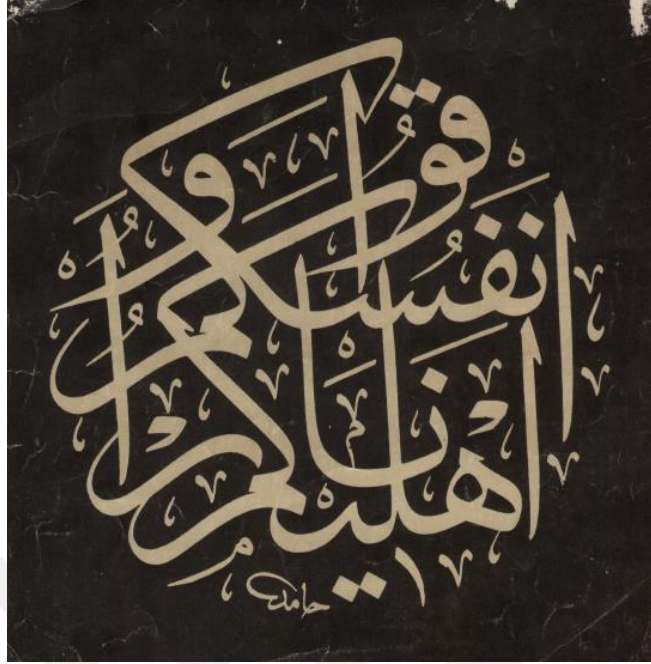 قُوا اَنْفُسَكُمْ وَاَهْلِيكُمْ نَارًا
حامد